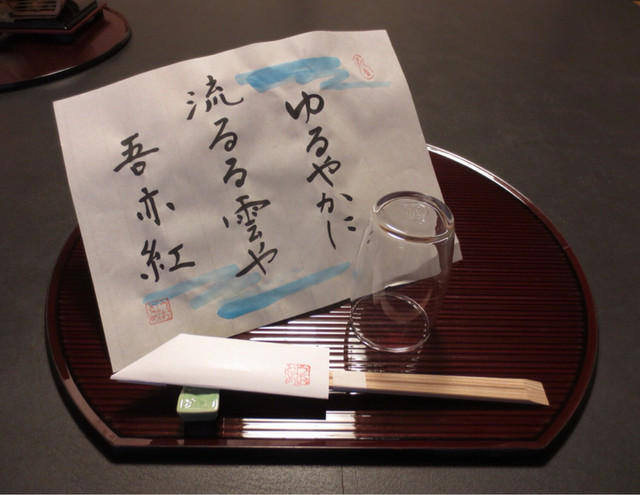 ゆるやかに
流るる雲や
吾亦紅